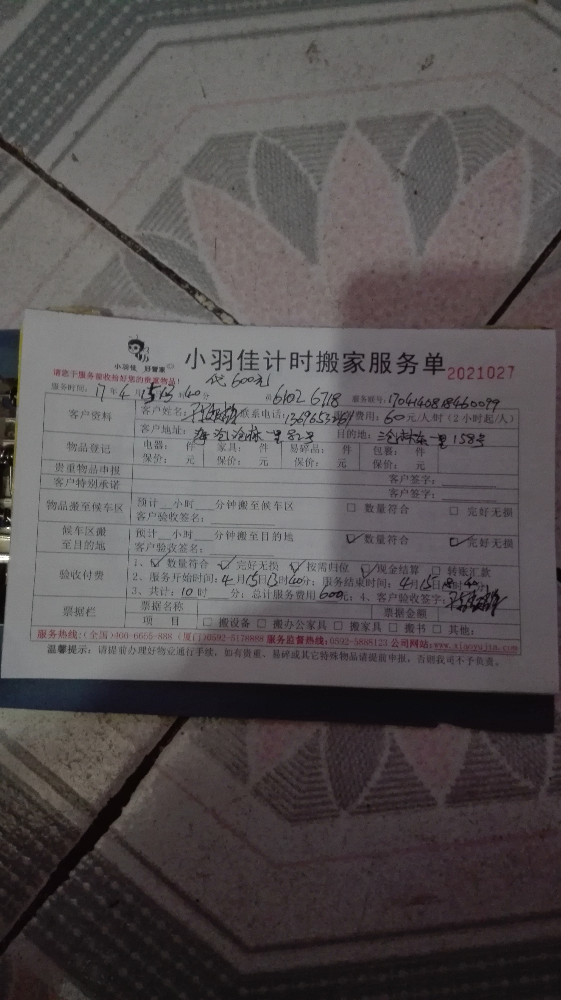 小羽佳 好管家
小羽佳计时搬家服务单 2021027
请您于服务前收拾好您的贵重物品!
收600元
服务时间: 17年4月15日13:40分 61026718 服务账号:
客户资料 客户姓名: 联系电话: 费用: 60元/人/时(2小时起/人)
客户地址: 目的地:
物品登记 电器: 件 家具: 件 易碎品: 件 包裹: 件
保价: 元 保价: 元 保价: 元 保价: 元
贵重物品申报 客户签字:
客户特别承诺 客户签字:
物品搬至候车区 预计__小时__分钟搬至候车区 □ 数量符合 □ 完好无损
客户验收签名:
候车区搬至目的地 预计__小时__分钟搬至目的地 □ 数量符合 ☑ 完好无损
客户验收签名:
验收付费 1、☑ 数量符合 ☑ 完好无损 ☑ 按需归位 ☑ 现金结算 □ 转账汇款
2、服务开始时间: 4月15日13时40分; 服务结束时间: 4月15日18时40
3、共计: 10时__分; 总计服务费用600元; 4、客户验收签字:
票据栏 票据名称 票据金额
项 目 □ 搬设备 □ 搬办公家具 □ 搬家具 □ 搬书 □ 其他:
服务热线:(全国)400-6655-888 (厦门)0592-5178888 服务监督热线:0592-5888123 公司网站:www.xiaoyujia.com
温馨提示: 请提前办理好物业通行手续, 如有贵重、易碎或其它特殊物品请提前申报, 否则我司不予负责。